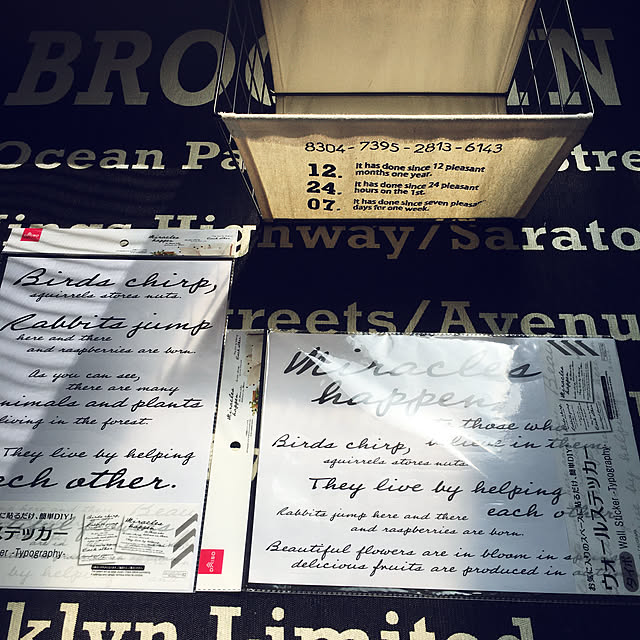 BROO
N
Ocean Pa
stre
8304-7395-2813-6143
12. It has done since 12 pleasant
months one year.
24. It has done since 24 pleasant
hours on the 1st.
07. It has done since seven pleasa
days for one week.
Highway/Sarato
treets/Avenu
Birds chirp,
squirrels stores nuts.
Rabbits jump
here and there
and raspberries are born.
As you can see,
there are many
nimals and plants
living in the forest.
They live by helping
each other.
に貼るだけ、簡単DIY!
ステッカー
-Typography-
DAISO
Miracles
happen
to those who
believe in them
Birds chirp,
squirrels stores nuts.
They live by helping
each o
Rabbits jump here and there
and raspberries are born.
Beautiful flowers are in bloom in s
delicious fruits are produced in a
お気に入りのスペースに貼るだけ、簡単DIY!
ウォールステッカー
Wall Sticker -Typography-
klyn Limited